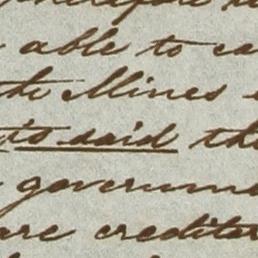 able to
the Mines
its said the
governme
are creditor